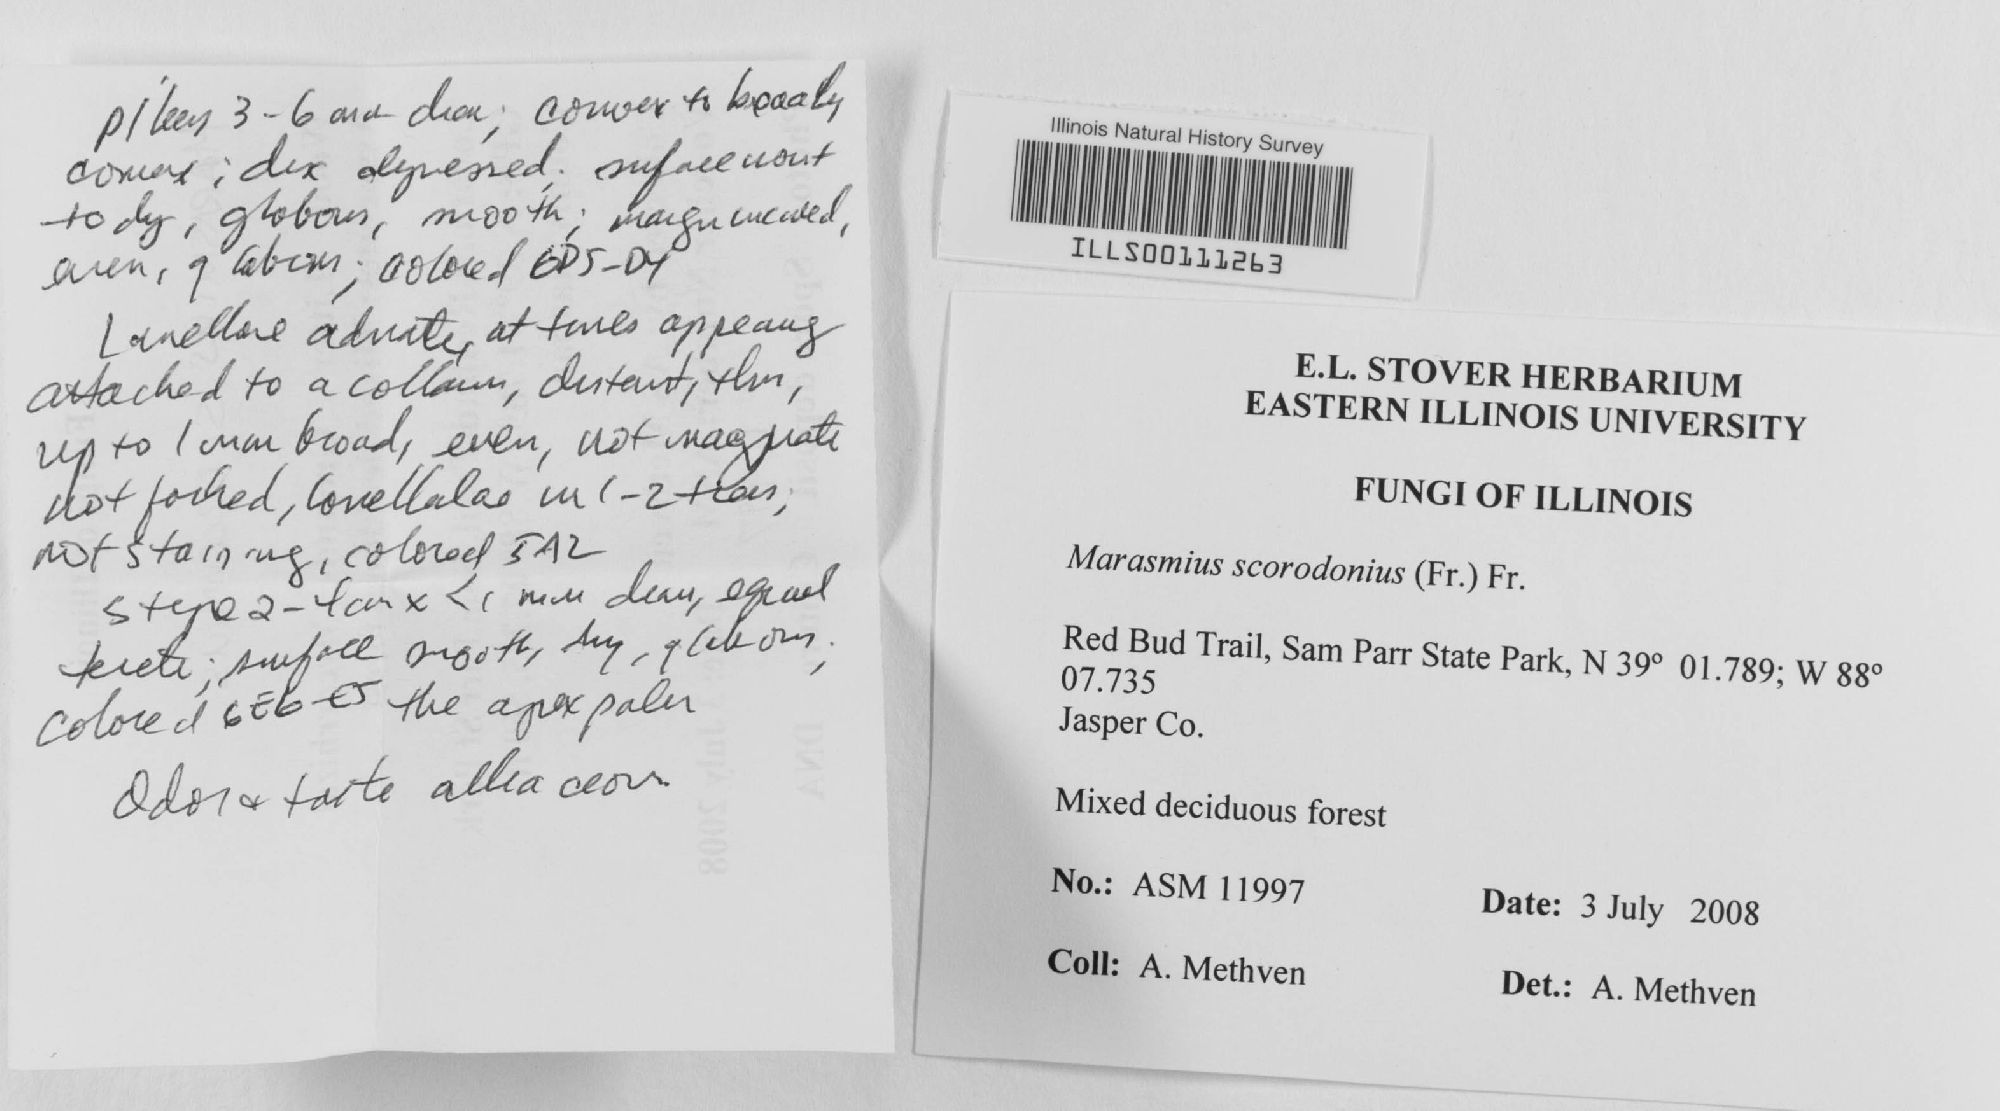 pileus 3-6 mm diam; convex to broadly
convex; disk depressed; surface moist
to dry, glabrous, smooth; margin incurved,
even, glabrous; colored 6D5-D4
Lamellae adnate, at times appearing
attached to a collarium, distant, thin,
up to 1 mm broad, even, not marginate
not forked, lamellulae in 1-2 tiers;
not staining, colored 5A2
Stipe 2-4 cm x <1 mm diam, equal
terete; surface smooth, dry, glabrous;
colored 6E6-E5 the apex paler
Odor & taste alliaceous
Illinois Natural History Survey
ILLS00111263
E.L. STOVER HERBARIUM
EASTERN ILLINOIS UNIVERSITY
FUNGI OF ILLINOIS
Marasmius scorodonius (Fr.) Fr.
Red Bud Trail, Sam Parr State Park, N 39° 01.789; W 88°
07.735
Jasper Co.
Mixed deciduous forest
No.: ASM 11997 Date: 3 July 2008
Coll: A. Methven Det.: A. Methven